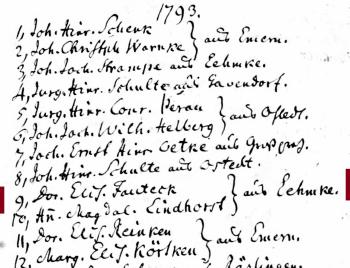 1793.
1, Joh. Hinr. Schenk
2, Joh. Christoph Warnke } aus Emern.
3, Joh. Joch. Strampe aus Lehmke.
4, Jurg. Hinr. Schulte aus Gavendorf.
5, Jurg. Hinr. Conr. Perau
6, Joh. Joch. Wilh. Helberg } aus Ostedt.
7, Joch. Ernst Hinr. Oetke aus
8, Joh. Hinr. Schulte aus Ostedt.
9, Dor. Elis. Fauteck
10, An. Magdal. Lindhorst } aus Lehmke.
11, Dor. Elis. Reinken
12, Marg. Elis. Körtken } aus Emern.